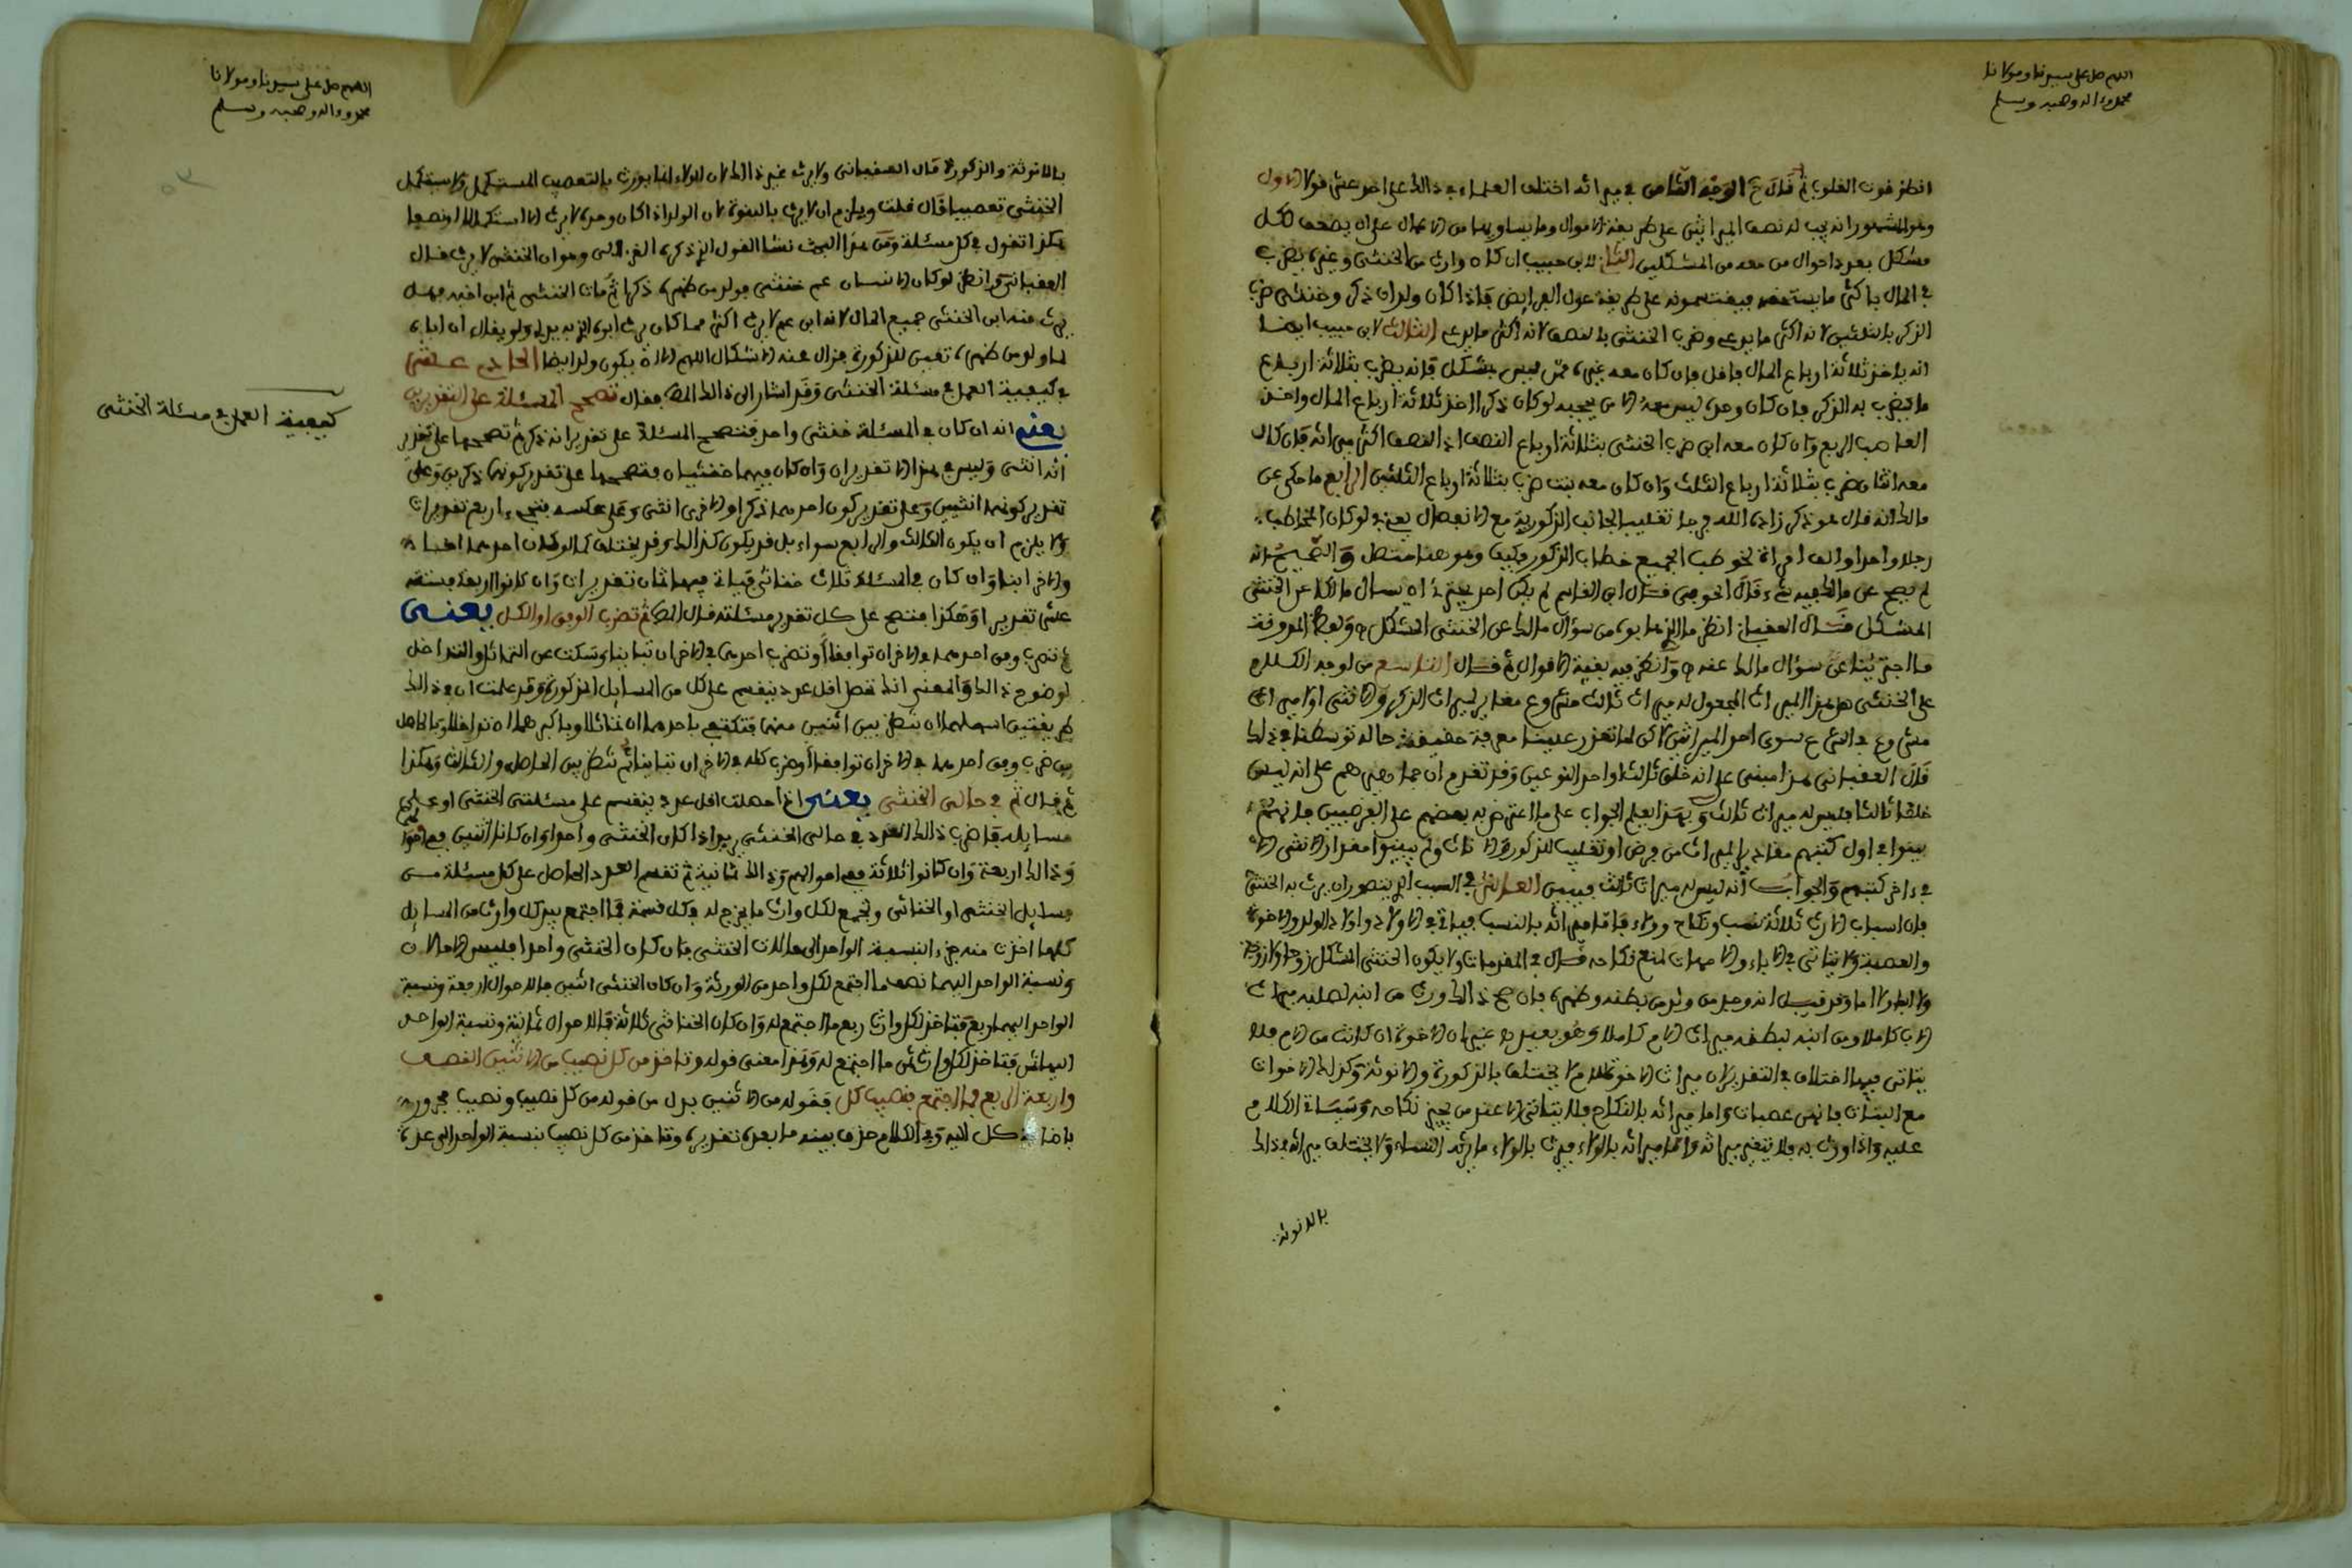 اللهم صل على سيدنا ومولانا
محمد وءاله وصحبه وسلم
انظر فوت القلوب ثم قال ح الوجه الثامن في ميراثه اختلف العلماء في ذالك على احد عشر قولا الاول
وهو المشهور انه يجب له نصف الميراثين على طريقة الاموال وما يساويها من الاعمال على ان يضعف لكل
مشكل بعدد احوال من معه من المشكلين الثاني لابن حبيب ان كان وارث من الخنثى وغيره يضرب
في المال باكثر ما يستحقه فيقتسمونه على طريقة عول الفرايض فاذا كان ولدان ذكر وخنثى ضرب
الذكر بالثلثين لانه اكثر ما يدعي وضرب الخنثى بالنصف لانه اكثر ما يدعي الثالث لابن حبيب ايضا
انه ياخذ ثلاثة ارباع المال فاقل فان كان معه غيره ممن ليس بمشكل فانه يضرب بثلاثة ارباع
ما يضرب به الذكر فان كان وحده ليس معه الا من يحجبه لو كان ذكرا اخذ ثلاثة ارباع المال واخذ
العاصب الربع وان كان معه ابن ضرب الخنثى بثلاثة ارباع النصف اذ النصف اكثر ميراثه فان كان
معه اثنان ضرب بثلاثة ارباع الثلث وان كان معه بنت ضرب بثلاثة ارباع الثلثين الرابع ما حكي عن
مالك انه قال هو ذكر زاده الله فرجا تغليبا لجانب الذكورية مع الانفصال يعني لو كان المخاطب
رجلا واحدا والف امراة لخوطب الجميع خطاب الذكور فكيف وهو هنا متصل والصحيح انه
لم يصح عن مالك فيه شيء قال الحوفي قال ابن القاسم لم يكن احد يجترئ ان يسال مالكا عن الخنثى
المشكل قال العقباني انظر ما الذي هابوه من سؤال مالك عن الخنثى المشكل
ما اجترينا على سؤال مالك عنه وانظر فيه بقية الاقوال ثم قال التاسع من اوجه الكلام
على الخنثى هل هذا الميراث المجعول له ميراث ثالث مشروع مغاير لميراث الذكر والانثى او لا ميراث
مشروع في الشرع سوى احد الميراثين لاكن لما تعذر علينا معرفة حقيقة حاله توسطنا في ذالك
قال العقباني هذا مبني على انه خلق ثالث او احد النوعين وقد تقدم ان جماهيرهم على انه ليس
خلقا ثالثا فليس له ميراث ثالث وبهذا يعلم الجواب على ما اعترض به بعضهم على الفرضيين فانهم
بينوا في اول كتبهم مقادير الميراث من فرض او تغليب للذكور والاناث ولم يبينوا مقدار الخنثى الا
في ءاخر كتبهم والجواب انه ليس له ميراث ثالث فيبين العاشر في السبب الذي يتصور ان يرث به الخنثى
فان اسباب الارث ثلاثة نسب ونكاح وولاء فاما ميراثه بالنسب فياتي في الاولاد واولاد الولد والاخوة
والعصبة ولا يتاتى في الاباء والامهات لمنع نكاحه قال في المقدمات ولا يكون الخنثى المشكل زوجا ولا زوجة
ولا ابا ولا اما وقد قيل انه وجد من ولد من بطنه وظهره فان صح ذالك ورث من ابنه لصلبه ميراث
الاب كاملا ومن ابنه لبطنه ميراث الام كاملا وهو بعيد غير ان الاخوة ان كانت من الام فلا
يتاتى فيها اختلاف في التقدير لان ميراث الاخوة للام لا يختلف بالذكورة والانوثة وكذلك الاخوات
مع البنات فانهن عصبات واما ميراثه بالنكاح فلا يتاتى الا عند من يجيز نكاحه وسياتي الكلام
عليه واذا ورث به فلا يتغير ميراثه واما ميراثه بالولاء فيرث بالولاء ما يرثه النساء ولا يختلف ميراثه في ذالك
بالانوثة
اللهم صل على سيدنا ومولانا
محمد وءاله وصحبه وسلم
بالانوثة والذكورة قال العقباني ولا يرث غير ذالك لان الولاء انما يورث بالتعصيب المستكمل ولا يستكمل
الخنثى تعصيبا قال قلت ويلزم ان لا يرث بالبنوة لان الولد اذا كان وحده لا يرث الا استكمالا او نصفا
هكذا تقول في كل مسئلة ومن هذا البحث نشا القول الذي ذكره الغزالي وهو ان الخنثى لا يرث قال
العقباني وانظر لو كان لانسان عم خنثى فولد من ظهره ذكرا ثم مات الخنثى ثم ابن اخيه فهل
يرث منه ابن الخنثى جميع المال لانه ابن عم لا يرث اكثر مما كان يرث ابوه الذي يدلي به او يقال ان اباه
لما ولد من ظهره تعين للذكورة فزال عنه الاشكال اللهم الا ان يكون ولد ايضا الحادي عشر
في كيفية العمل في مسئلة الخنثى وقد اشار الى ذالك المص فقال تصحح المسئلة على التقديرين
يعني انه ان كان في المسئلة خنثى واحد فتصحح المسئلة على تقدير انه ذكر ثم تصححها على تقدير
انه انثى وليس في هذا الا تقديران وان كان فيها خنثيان فتصححها على تقدير كونهما ذكرين وعلى
تقدير كونهما انثيين وعلى تقدير كون احدهما ذكرا والاخرى انثى وعلى عكسه فتجيء اربع تقديرات
ولا يلزم ان يكون الثالث والرابع سواء بل قد يكون كذالك وقد يختلف كما لو كان احدهما اخا
والاخر ابنا وان كان في المسئلة ثلاث خناثى فياتي فيها ثمان تقديرات وان كانوا اربعة فستة
عشر تقديرا وهكذا فتصح على كل تقدير مسئلته قال المص ثم تضرب الوفق او الكل يعني
ثم تضرب وفق احدهما في الاخر ان توافقا او تضرب احدهما في الاخر ان تباينا وسكت عن التماثل والتداخل
لوضوح ذالك والمعنى انك تحصل اقل عدد ينقسم على كل من المسايل المذكورة وقد علمت ان في ذالك
طريقتين اسهلهما ان تنظر بين اثنين منها فتكتفي باحدهما ان تماثلا وباكبرهما ان تداخلا وبالحاصل
من ضرب وفق احدهما في الاخر ان توافقا او ضرب كله في الاخر ان تباينا ثم تنظر بين الحاصل والثالث وهكذا
ثم قال ثم في حالي الخنثى يعني اذا حصلت اقل عدد ينقسم على مسئلتي الخنثى او على
مسايله فاضرب ذالك العدد في حالي الخنثى يريد اذا كان الخنثى واحدا وان كانا اثنين ففي احوالهما
وذالك اربعة وان كانوا ثلاثة ففي احوالهم وذالك ثمانية ثم تقسم العدد الحاصل على كل مسئلة من
مسايل الخنثى او الخناثى وتجمع لكل وارث ما يخرج له في كل قسمة فما اجتمع بيد كل وارث من المسايل
كلها اخذت منه جزءا بنسبة الواحد الى حالات الخنثى فان كان الخنثى واحدا فليس الا حالان
ونسبة الواحد اليهما نصف ما اجتمع لكل واحد من الورثة وان كان الخنثى اثنين فالاحوال اربعة ونسبة
الواحد اليها ربع فتاخذ لكل وارث ربع ما اجتمع له وان كان الخناثى ثلاثة فالاحوال ثمانية ونسبة الواحد
اليها ثمن فتاخذ لكل وارث ثمن ما اجتمع له وهذا معنى قوله وتاخذ من كل نصيب من الاثنين النصف
واربعة الربع فما اجتمع فنصيب كل فقوله من الاثنين بدل من قوله من كل نصيب ونصيب مجرور
باضافة كل اليه وفي الكلام حذف يبينه ما بعده تقديره وتاخذ من كل نصيب بنسبة الواحد الى عدة
كيفية العمل في مسئلة الخنثى